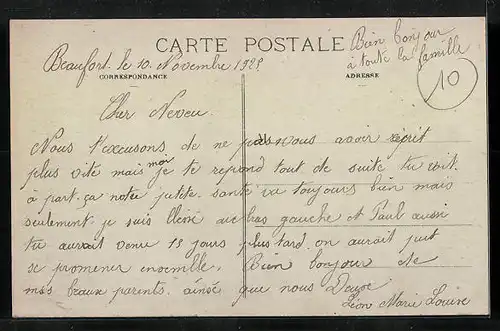 CARTE POSTALE
Bien bonjour
à toute la famille
10
Beaufort. le 10. Novembre 192
CORRESPONDANCE
ADRESSE
Cher Neveu
Nous t'excusons de ne pas nous avoir écrit
plus vite mais moi je te reprond tout de suite tu voit.
à part. ça notre petite. santé va toujours bien mais
seulement je suis blessé au bas gauche et Paul aussi
tu aurait venu 15 jours plus tard. on aurait put
se promener ensemble. Bien bonjour de
mes beaux parents. ainsé que nous Deuse
Léon Marie Louise